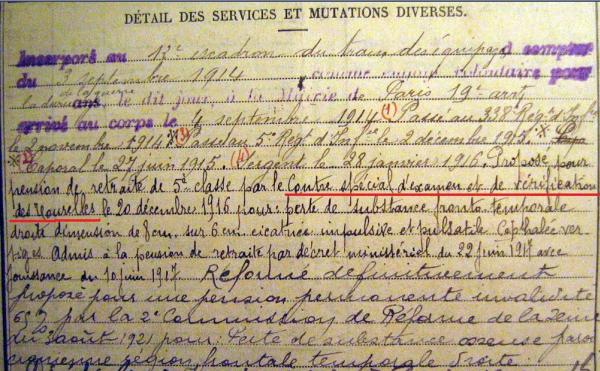 DÉTAIL DES SERVICES ET MUTATIONS DIVERSES.
Incorporé au 17e escadron du train des équipages à compter
du 3 septembre 1914 comme engagé volontaire pour
la durée de la guerre ans, le dit jour, à la Mairie de Paris 19e arrt
arrivé au corps le 4 septembre 1914 (1) Passé au 338e Régt d'Infie
le 2 novembre 1914 (3) Passé au 5e Régt d'Infie le 2 décembre 1915
(2) Caporal le 27 juin 1915. (4) Sergent le 28 janvier 1916. Proposé pour
pension de retraite de 5e classe par le Centre spécial d'examen et de vérification
des Tourelles le 20 décembre 1916 pour: perte de substance fronto temporale
droite dimension de 8cm. sur 6cm. cicatrice impulsive et pulsatile Céphalée ver
tiges. Admis à la pension de retraite par décret ministériel du 22 juin 1917 avec
Jouissance du 10 juin 1917. Réformé définitivement
proposé pour une pension permanente invalidité
65% par la 2e Commission de Réforme de la Seine
du 3 août 1921 pour: Perte de substance osseuse
crânienne région frontale temporale droite.